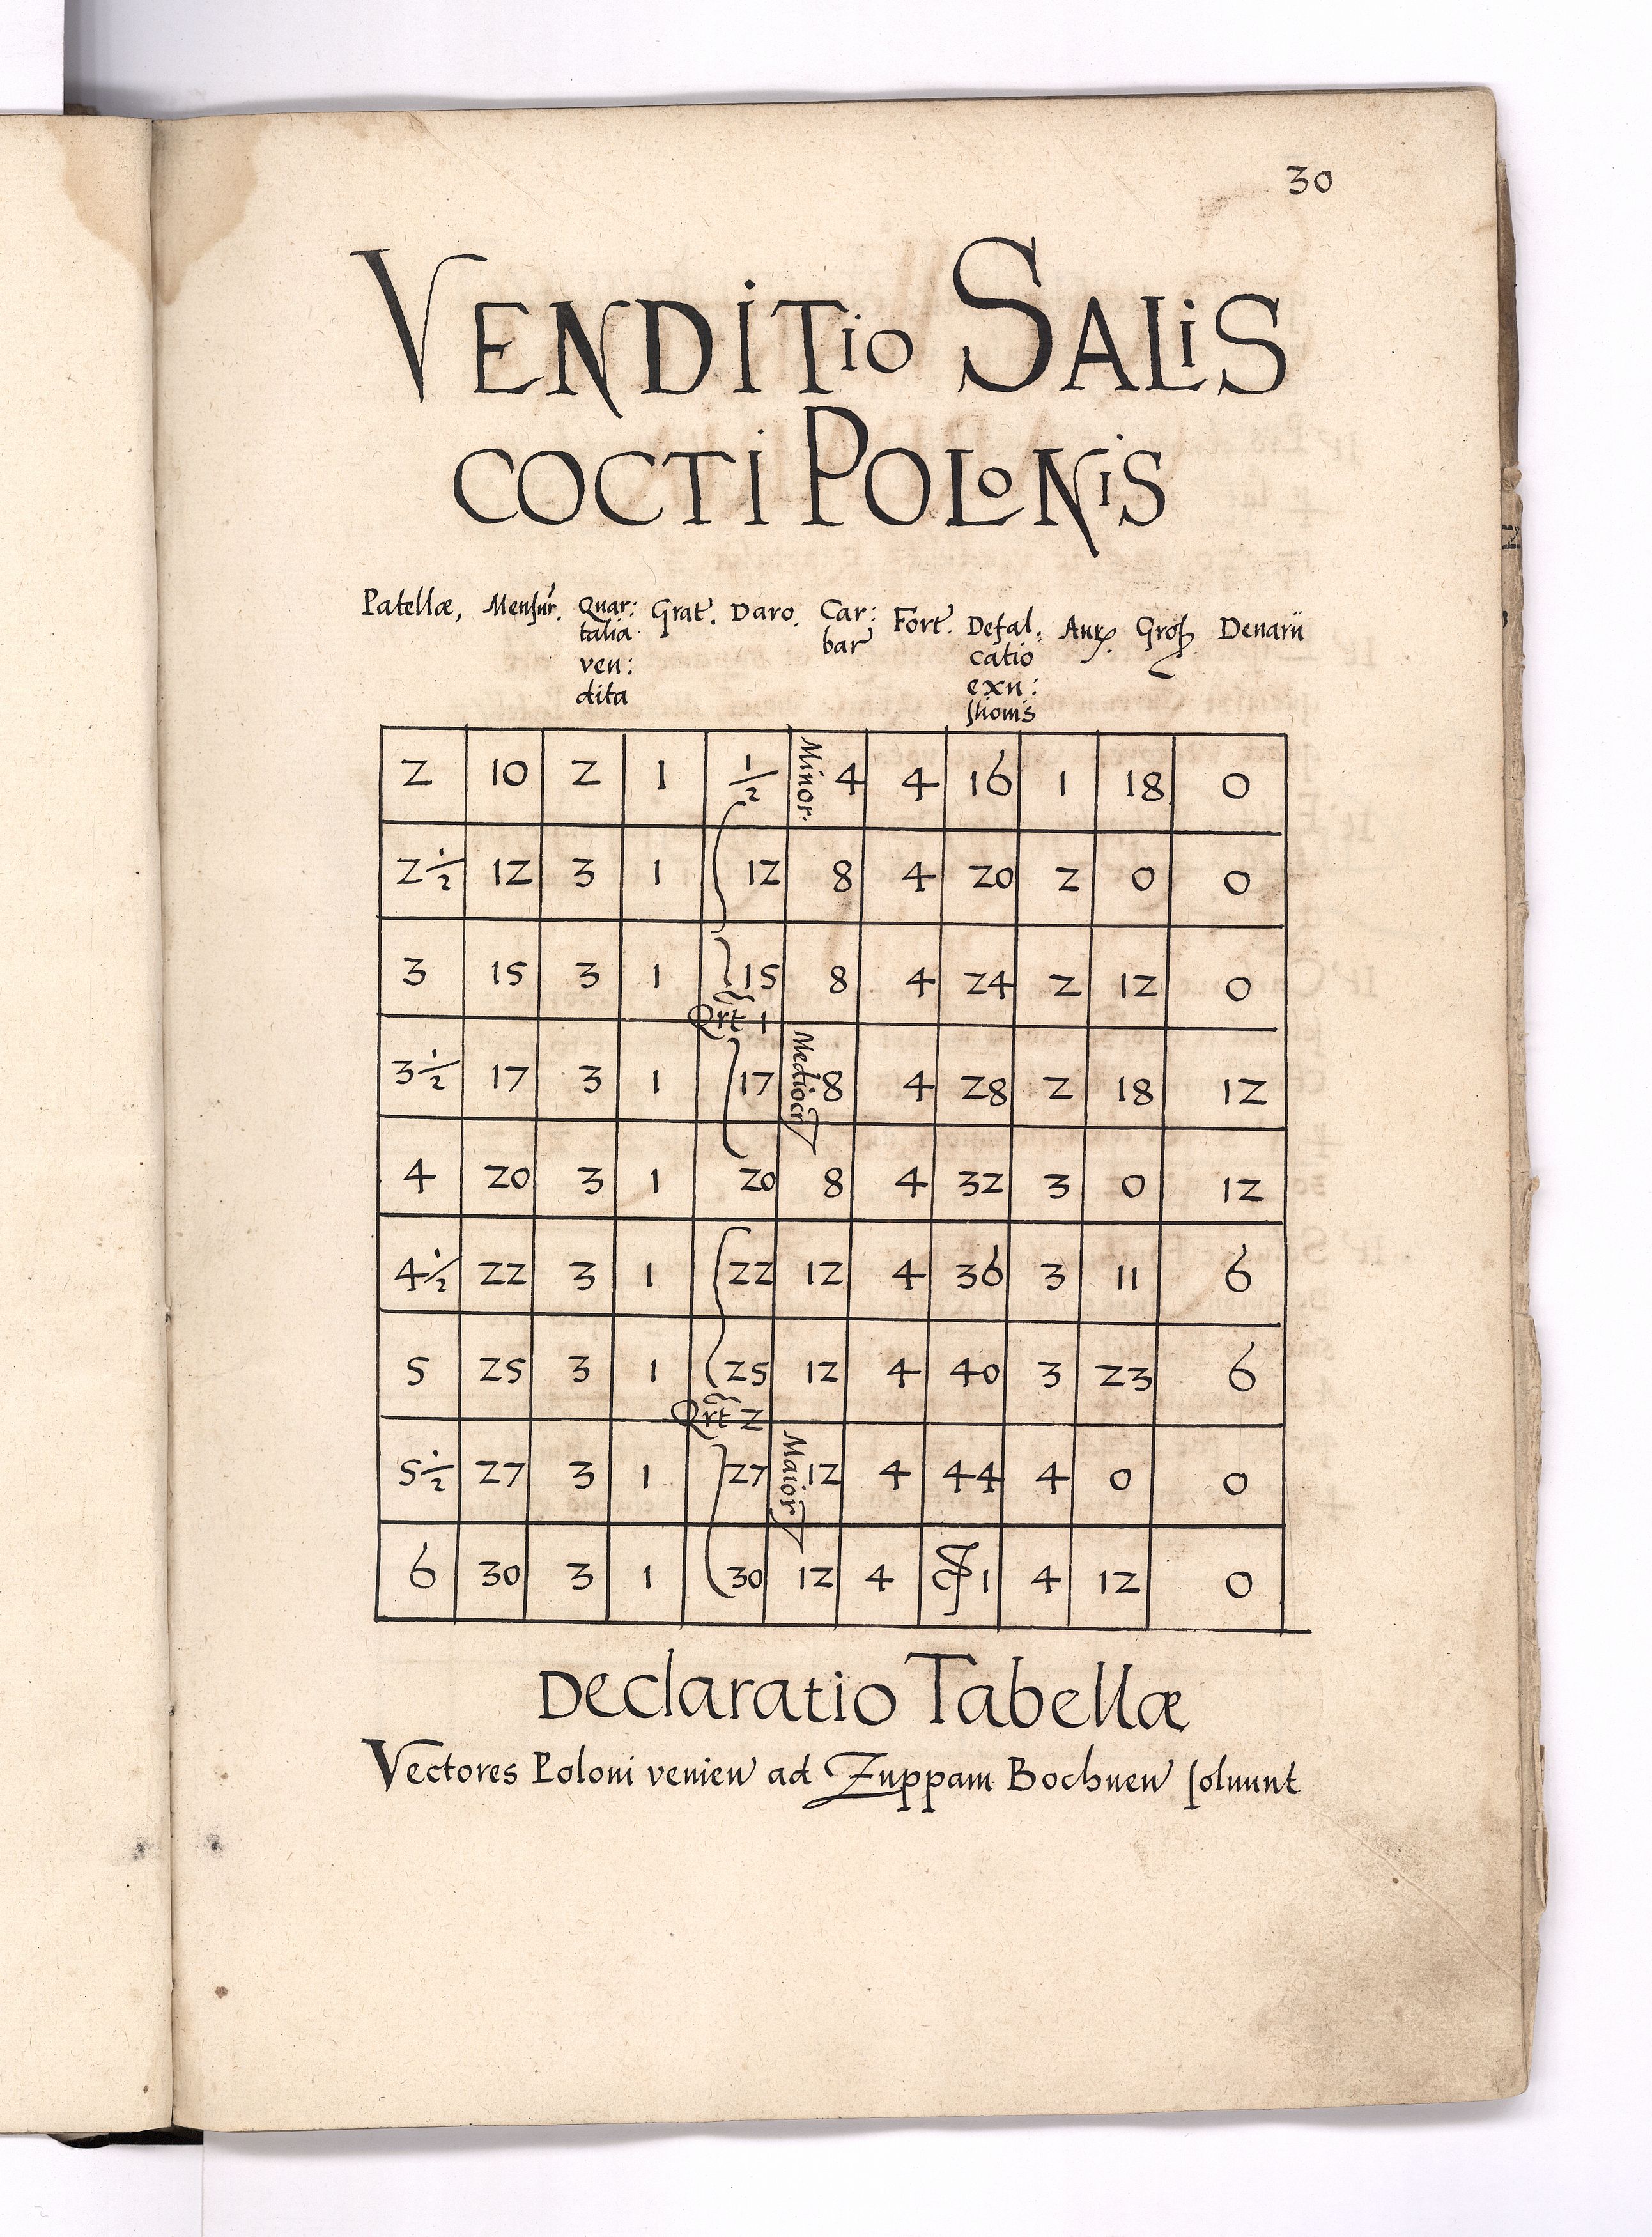 30
VENDITio SALiS
COCTI POLoNiS
Patellæ, Mensur. Quar: Grat. Daro. Car: Fort. Defal: Aur. Groß. Denarii
talia bar catio
ven: exu:
dita shonis
2 10 2 1 1/2 Minor. 4 4 16 1 18 0
2 1/2 12 3 1 12 8 4 20 2 0 0
3 15 3 1 15 8 4 24 2 12 0
Qrt 1
3 1/2 17 3 1 17 Mediocr 8 4 28 2 18 12
4 20 3 1 20 8 4 32 3 0 12
4 1/2 22 3 1 22 12 4 36 3 11 6
5 25 3 1 25 12 4 40 3 23 6
Qrt 2
5 1/2 27 3 1 27 Maior 12 4 44 4 0 0
6 30 3 1 30 12 4 1 4 12 0
Declaratio Tabellæ
Vectores Poloni venien ad Zuppam Bochnen soluunt